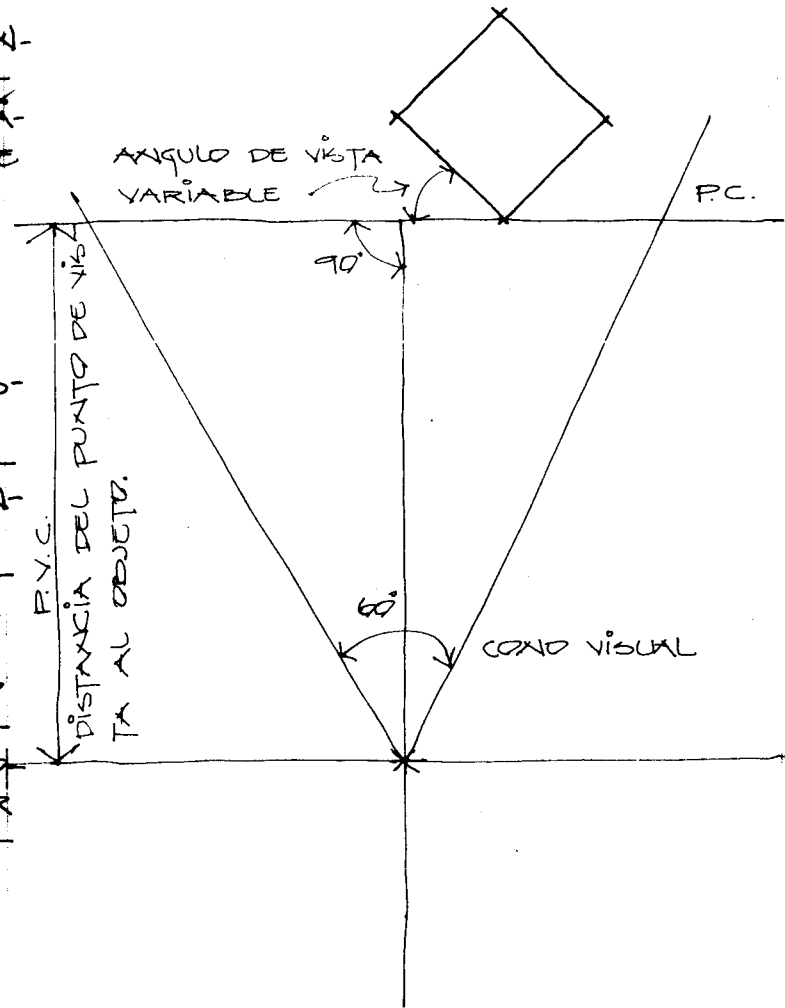 ANGULO DE VISTA
VARIABLE
P.C.
90°
P.V.C.
DISTANCIA DEL PUNTO DE VIS
TA AL OBJETO.
60°
CONO VISUAL